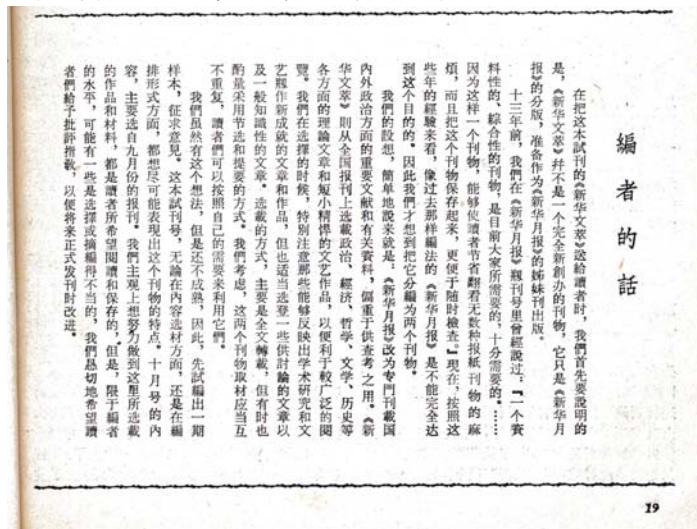 編者的話
在把这本試刊的《新华文萃》送給讀者时，我們首先要說明的
是，《新华文萃》幷不是一个完全新創办的刊物，它只是《新华月
报》的分版，准备作为《新华月报》的姊妹刊出版。
十三年前，我們在《新华月报》創刊号里曾經說过：“一个資
料性的、綜合性的刊物，是目前大家所需要的，十分需要的。……
因为这样一个刊物，能够使讀者节省翻看无数种报紙刊物的麻
煩，而且把这个刊物保存起来，更便于随时檢查。”现在，按照这
些年的經驗来看，像过去那样編法的《新华月报》是不能完全达
到这个目的的。因此我們才想到把它分編为两个刊物。
我們的設想，簡单地說来就是：《新华月报》改为专門刊載国
內外政治方面的重要文献和有关資料，偏重于供查考之用。《新
华文萃》則从全国报刊上选載政治、經济、哲学、文学、历史等
各方面的理論文章和短小精悍的文艺作品，以便利于較广泛的閱
覽。我們在选擇的时候，特別注意那些能够反映出学术研究和文
艺創作新成就的文章和作品，但也适当选登一些供討論的文章以
及一般知識性的文章。选載的方式，主要是全文轉載，但有时也
酌量采用节选和提要的方式。我們考虑，这两个刊物取材应当互
不重复，讀者們可以按照自己的需要来利用它們。
我們虽然有这个想法，但是还不成熟，因此，先試編出一期
样本，征求意見。这本試刊号，无論在內容选材方面，还是在編
排形式方面，都想尽可能表现出这个刊物的特点。十月号的內
容，主要选自九月份的报刊。我們主观上想努力做到这里所选載
的作品和材料，都是讀者所希望閱讀和保存的。但是，限于編者
的水平，可能有一些是选擇或摘編得不当的，我們恳切地希望讀
者們給予批評指教，以便将来正式发刊时改进。
19